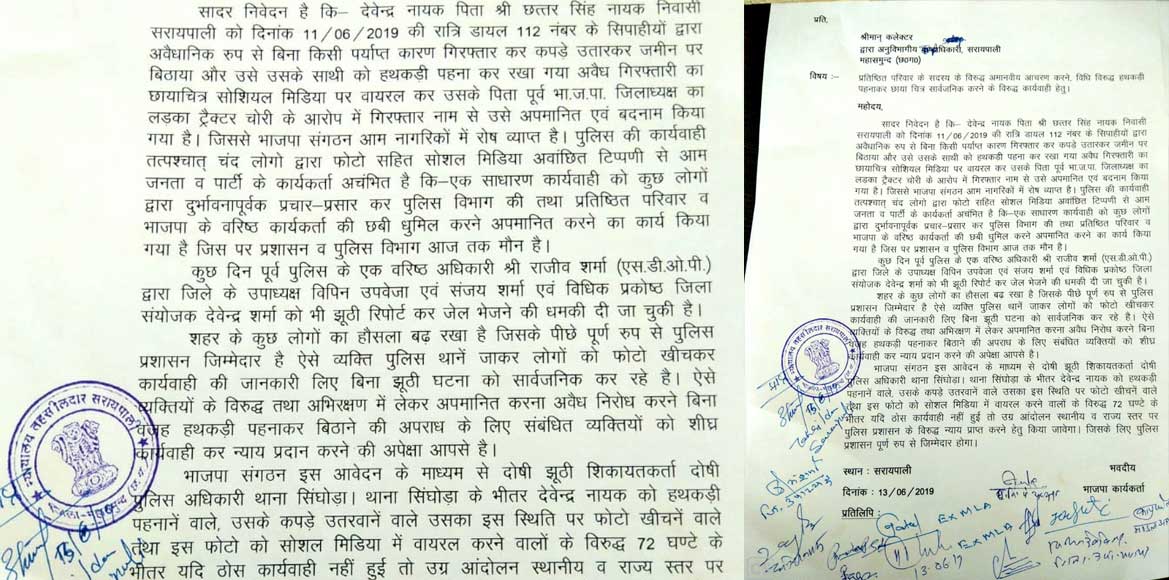 सादर निवेदन है कि– देवेन्द्र नायक पिता श्री छत्तर सिंह नायक निवासी
सरायपाली को दिनांक 11/06/2019 की रात्रि डायल 112 नंबर के सिपाहीयों द्वारा
अवैधानिक रुप से बिना किसी पर्याप्त कारण गिरफ्तार कर कपड़े उतारकर जमीन पर
बिठाया और उसे उसके साथी को हथकड़ी पहना कर रखा गया अवैध गिरफ्तारी का
छायाचित्र सोशियल मिडिया पर वायरल कर उसके पिता पूर्व भा.ज.पा. जिलाध्यक्ष का
लड़का ट्रैक्टर चोरी के आरोप में गिरफ्तार नाम से उसे अपमानित एवं बदनाम किया
गया है। जिससे भाजपा संगठन आम नागरिकों में रोष व्याप्त है। पुलिस की कार्यवाही
तत्पश्चात् चंद लोगो द्वारा फोटो सहित सोशल मिडिया अवांछित टिप्पणी से आम
जनता व पार्टी के कार्यकर्ता अचंभित है कि–एक साधारण कार्यवाही को कुछ लोगों
द्वारा दुर्भावनापूर्वक प्रचार–प्रसार कर पुलिस विभाग की तथा प्रतिष्ठित परिवार व
भाजपा के वरिष्ठ कार्यकर्ता की छबी धुमिल करने अपमानित करने का कार्य किया
गया है जिस पर प्रशासन व पुलिस विभाग आज तक मौन है।
कुछ दिन पूर्व पुलिस के एक वरिष्ठ अधिकारी श्री राजीव शर्मा (एस.डी.ओ.पी.)
द्वारा जिले के उपाध्यक्ष विपिन उपवेजा एवं संजय शर्मा एवं विधिक प्रकोष्ठ जिला
संयोजक देवेन्द्र शर्मा को भी झूठी रिपोर्ट कर जेल भेजने की धमकी दी जा चुकी है।
शहर के कुछ लोगों का हौसला बढ़ रखा है जिसके पीछे पूर्ण रुप से पुलिस
प्रशासन जिम्मेदार है ऐसे व्यक्ति पुलिस थानें जाकर लोगों को फोटो खीचकर
कार्यवाही की जानकारी लिए बिना झूठी घटना को सार्वजनिक कर रहे है। ऐसे
व्यक्तियों के विरुद्ध तथा अभिरक्षा में लेकर अपमानित करना अवैध निरोध करने बिना
वजह हथकड़ी पहनाकर बिठाने की अपराध के लिए संबंधित व्यक्तियों को शीघ्र
कार्यवाही कर न्याय प्रदान करने की अपेक्षा आपसे है।
भाजपा संगठन इस आवेदन के माध्यम से दोषी झूठी शिकायतकर्ता दोषी
पुलिस अधिकारी थाना सिंघोड़ा। थाना सिंघोड़ा के भीतर देवेन्द्र नायक को हथकड़ी
पहनानें वाले, उसके कपड़े उतरवानें वाले उसका इस स्थिति पर फोटो खीचनें वाले
तथा इस फोटो को सोशल मिडिया में वायरल करने वालों के विरुद्ध 72 घण्टे के
भीतर यदि ठोस कार्यवाही नहीं हुई तो उग्र आंदोलन स्थानीय व राज्य स्तर पर
न्यायालय तहसीलदार सरायपाली
प्रति,
श्रीमान् कलेक्टर
द्वारा अनुविभागीय अधिकारी, सरायपाली
महासमुन्द (छ०ग०)
विषय :– प्रतिष्ठित परिवार के सदस्य के विरुद्ध अमानवीय आचरण करने, विधि विरुद्ध हथकड़ी
पहनाकर छाया चित्र सार्वजनिक करने के विरुद्ध कार्यवाही हेतु।
महोदय,
सादर निवेदन है कि– देवेन्द्र नायक पिता श्री छत्तर सिंह नायक निवासी
सरायपाली को दिनांक 11/06/2019 की रात्रि डायल 112 नंबर के सिपाहीयों द्वारा
अवैधानिक रुप से बिना किसी पर्याप्त कारण गिरफ्तार कर कपड़े उतारकर जमीन पर
बिठाया और उसे उसके साथी को हथकड़ी पहना कर रखा गया अवैध गिरफ्तारी का
छायाचित्र सोशियल मिडिया पर वायरल कर उसके पिता पूर्व भा.ज.पा. जिलाध्यक्ष का
लड़का ट्रैक्टर चोरी के आरोप में गिरफ्तार नाम से उसे अपमानित एवं बदनाम किया
गया है। जिससे भाजपा संगठन आम नागरिकों में रोष व्याप्त है। पुलिस की कार्यवाही
तत्पश्चात् चंद लोगो द्वारा फोटो सहित सोशल मिडिया अवांछित टिप्पणी से आम
जनता व पार्टी के कार्यकर्ता अचंभित है कि–एक साधारण कार्यवाही को कुछ लोगों
द्वारा दुर्भावनापूर्वक प्रचार–प्रसार कर पुलिस विभाग की तथा प्रतिष्ठित परिवार व
भाजपा के वरिष्ठ कार्यकर्ता की छबी धुमिल करने अपमानित करने का कार्य किया
गया है जिस पर प्रशासन व पुलिस विभाग आज तक मौन है।
कुछ दिन पूर्व पुलिस के एक वरिष्ठ अधिकारी श्री राजीव शर्मा (एस.डी.ओ.पी.)
द्वारा जिले के उपाध्यक्ष विपिन उपवेजा एवं संजय शर्मा एवं विधिक प्रकोष्ठ जिला
संयोजक देवेन्द्र शर्मा को भी झूठी रिपोर्ट कर जेल भेजने की धमकी दी जा चुकी है।
शहर के कुछ लोगों का हौसला बढ़ रखा है जिसके पीछे पूर्ण रुप से पुलिस
प्रशासन जिम्मेदार है ऐसे व्यक्ति पुलिस थानें जाकर लोगों को फोटो खीचकर
कार्यवाही की जानकारी लिए बिना झूठी घटना को सार्वजनिक कर रहे है। ऐसे
व्यक्तियों के विरुद्ध तथा अभिरक्षण में लेकर अपमानित करना अवैध निरोध करने बिना
वजह हथकड़ी पहनाकर बिठाने की अपराध के लिए संबंधित व्यक्तियों को शीघ्र
कार्यवाही कर न्याय प्रदान करने की अपेक्षा आपसे है।
भाजपा संगठन इस आवेदन के माध्यम से दोषी झूठी शिकायतकर्ता दोषी
पुलिस अधिकारी थाना सिंघोड़ा। थाना सिंघोड़ा के भीतर देवेन्द्र नायक को हथकड़ी
पहनानें वाले, उसके कपड़े उतरवानें वाले उसका इस स्थिति पर फोटो खीचनें वाले
तथा इस फोटो को सोशल मिडिया में वायरल करने वालों के विरुद्ध 72 घण्टे के
भीतर यदि ठोस कार्यवाही नहीं हुई तो उग्र आंदोलन स्थानीय व राज्य स्तर पर
पुलिस प्रशासन के विरुद्ध न्याय प्राप्त करने हेतु किया जावेगा। जिसके लिए पुलिस
प्रशासन पूर्ण रुप से जिम्मेदार होगा।
स्थान : सरायपाली
भवदीय
दिनांक : 13/06/2019
भाजपा कार्यकर्ता
प्रतिलिपि :
EX MLA
EX MLA